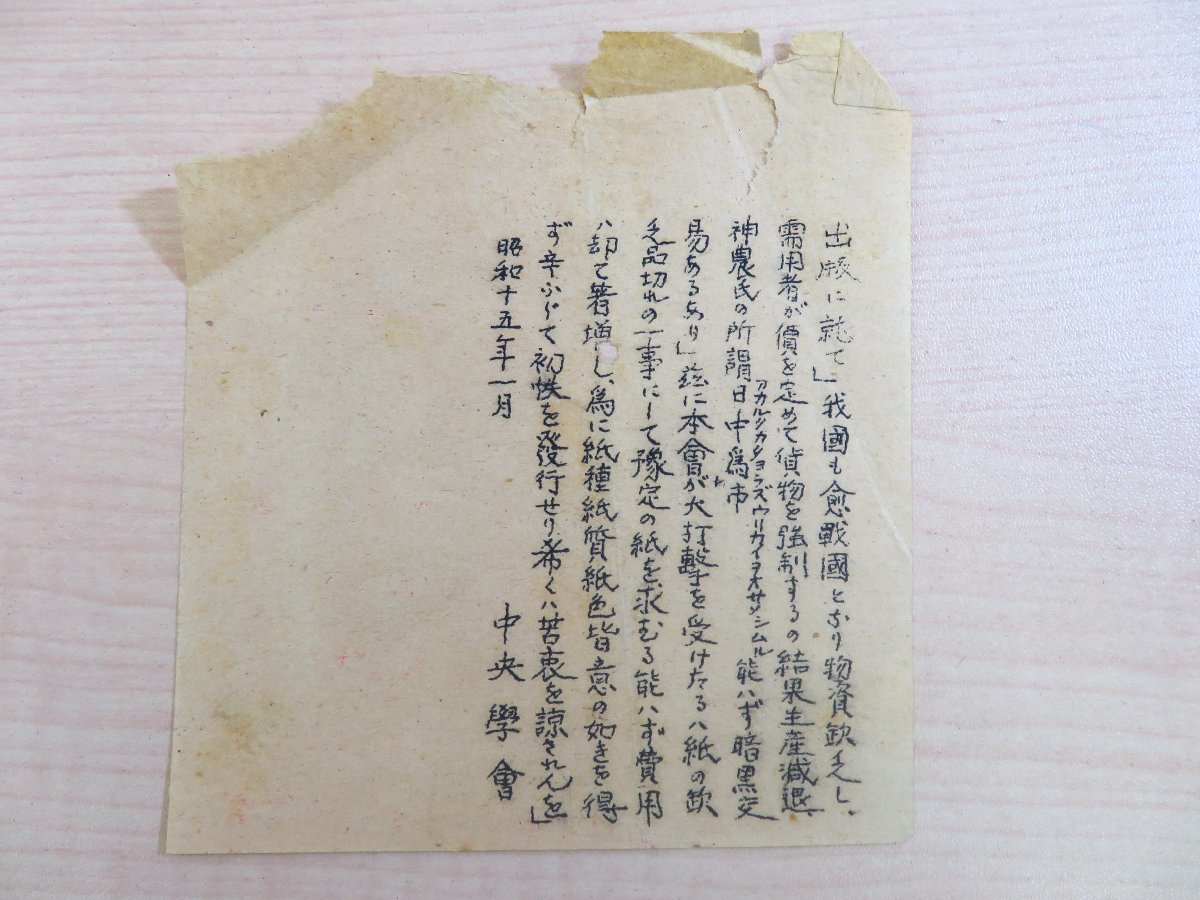 出版に就て」我國も愈戰國となり物資欠乏し、
需用者が價を定めて貨物を強制するの結果生産減退、
アカルクカタヨラズウリカイヲオサメシムル
神農氏の所謂日中爲レ市能ハず暗黒交
易あるあり」茲に本會が大打撃を受けたるハ紙の欠
乏品切れの一事にして豫定の紙を求むる能ハず費用
ハ却て著増し、爲に紙種紙質紙色皆意の如きを得
ず辛ふじて初帙を發行せり希くハ苦衷を諒されんを」
昭和十五年一月 中央學會